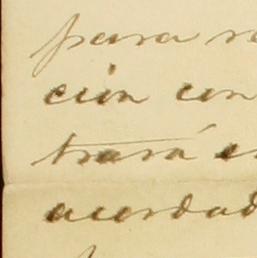 para
ción con
trará
acordad